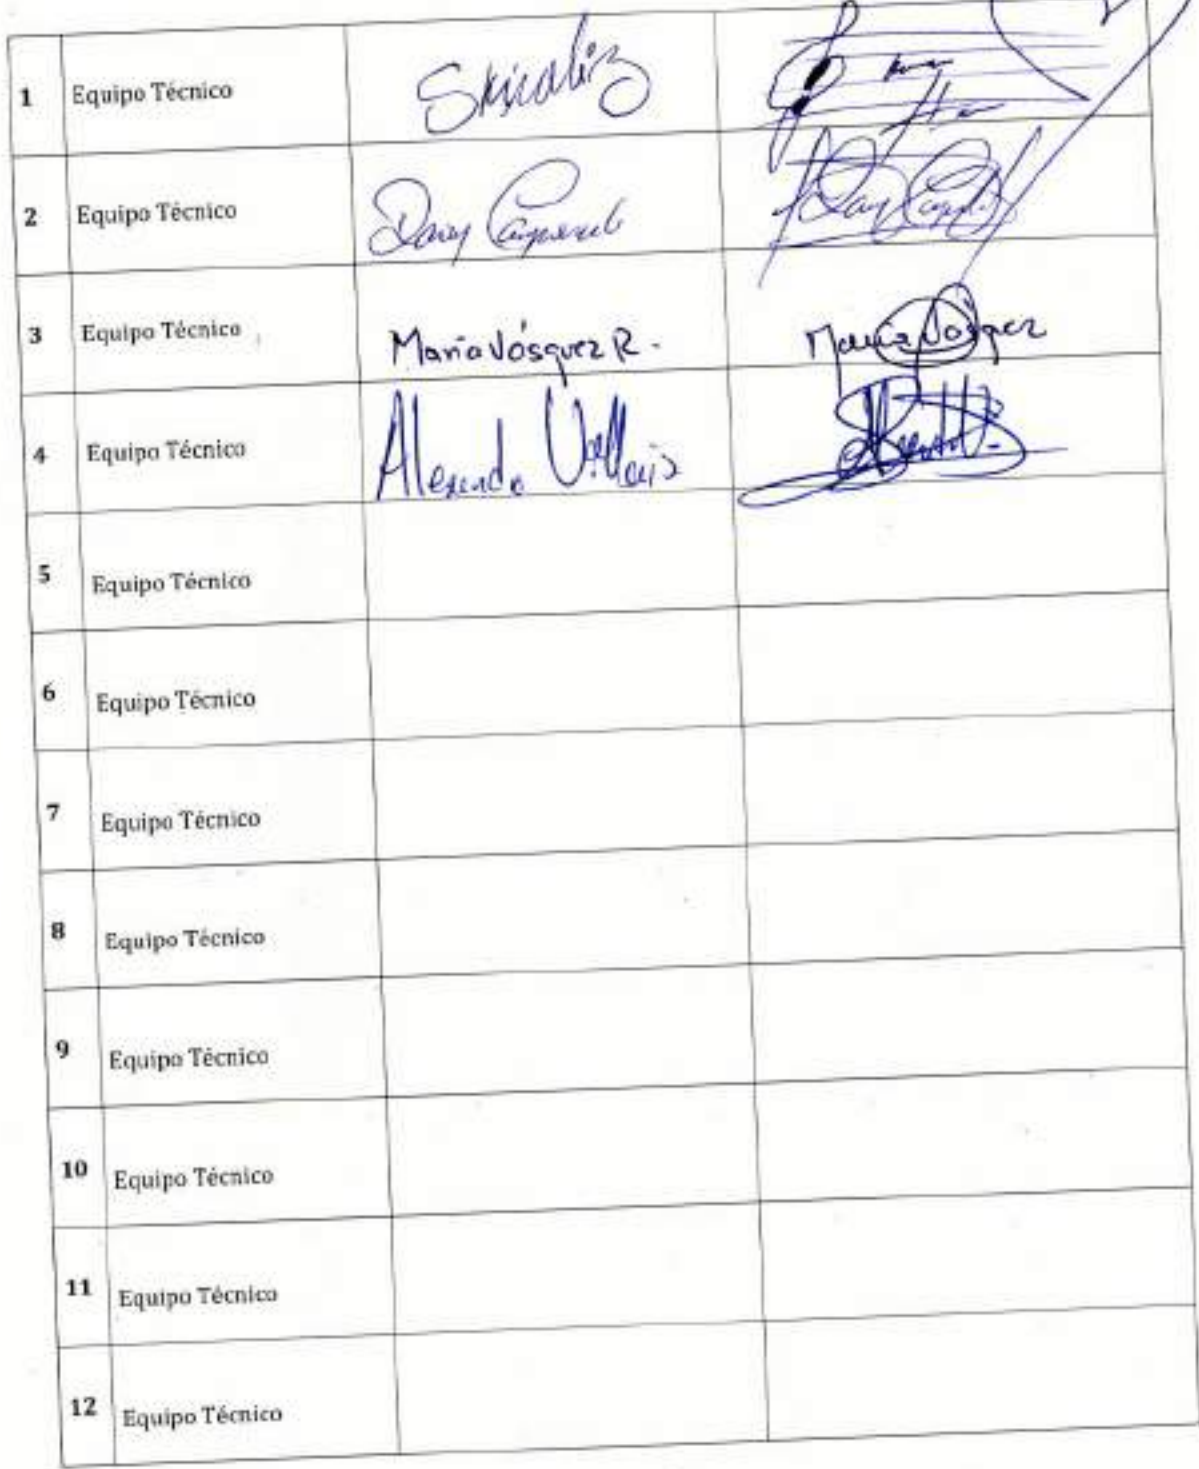 1 Equipo Técnico
2 Equipo Técnico
3 Equipo Técnico María Vásquez R. María Vásquez
4 Equipo Técnico
5 Equipo Técnico
6 Equipo Técnico
7 Equipo Técnico
8 Equipo Técnico
9 Equipo Técnico
10 Equipo Técnico
11 Equipo Técnico
12 Equipo Técnico